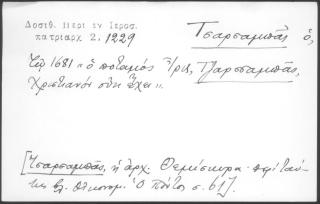 Δοσιθ. Περί εν Ιεροσ.
πατριαρχ 2, 1229
Τσαρσαμπᾶς ὁ,
Τῷ 1681 "ὁ ποταμὸς Τζαρσσαμπᾶς,
Χριστιανοὶ οὐκ ἔχει".
[Τσαρσαμπᾶς, ἡ ἀρχ. Θεμίσκυρα· περὶ ταύ-
της βλ. Οἰκονομ. Ὁ Πόντος σ. 61].